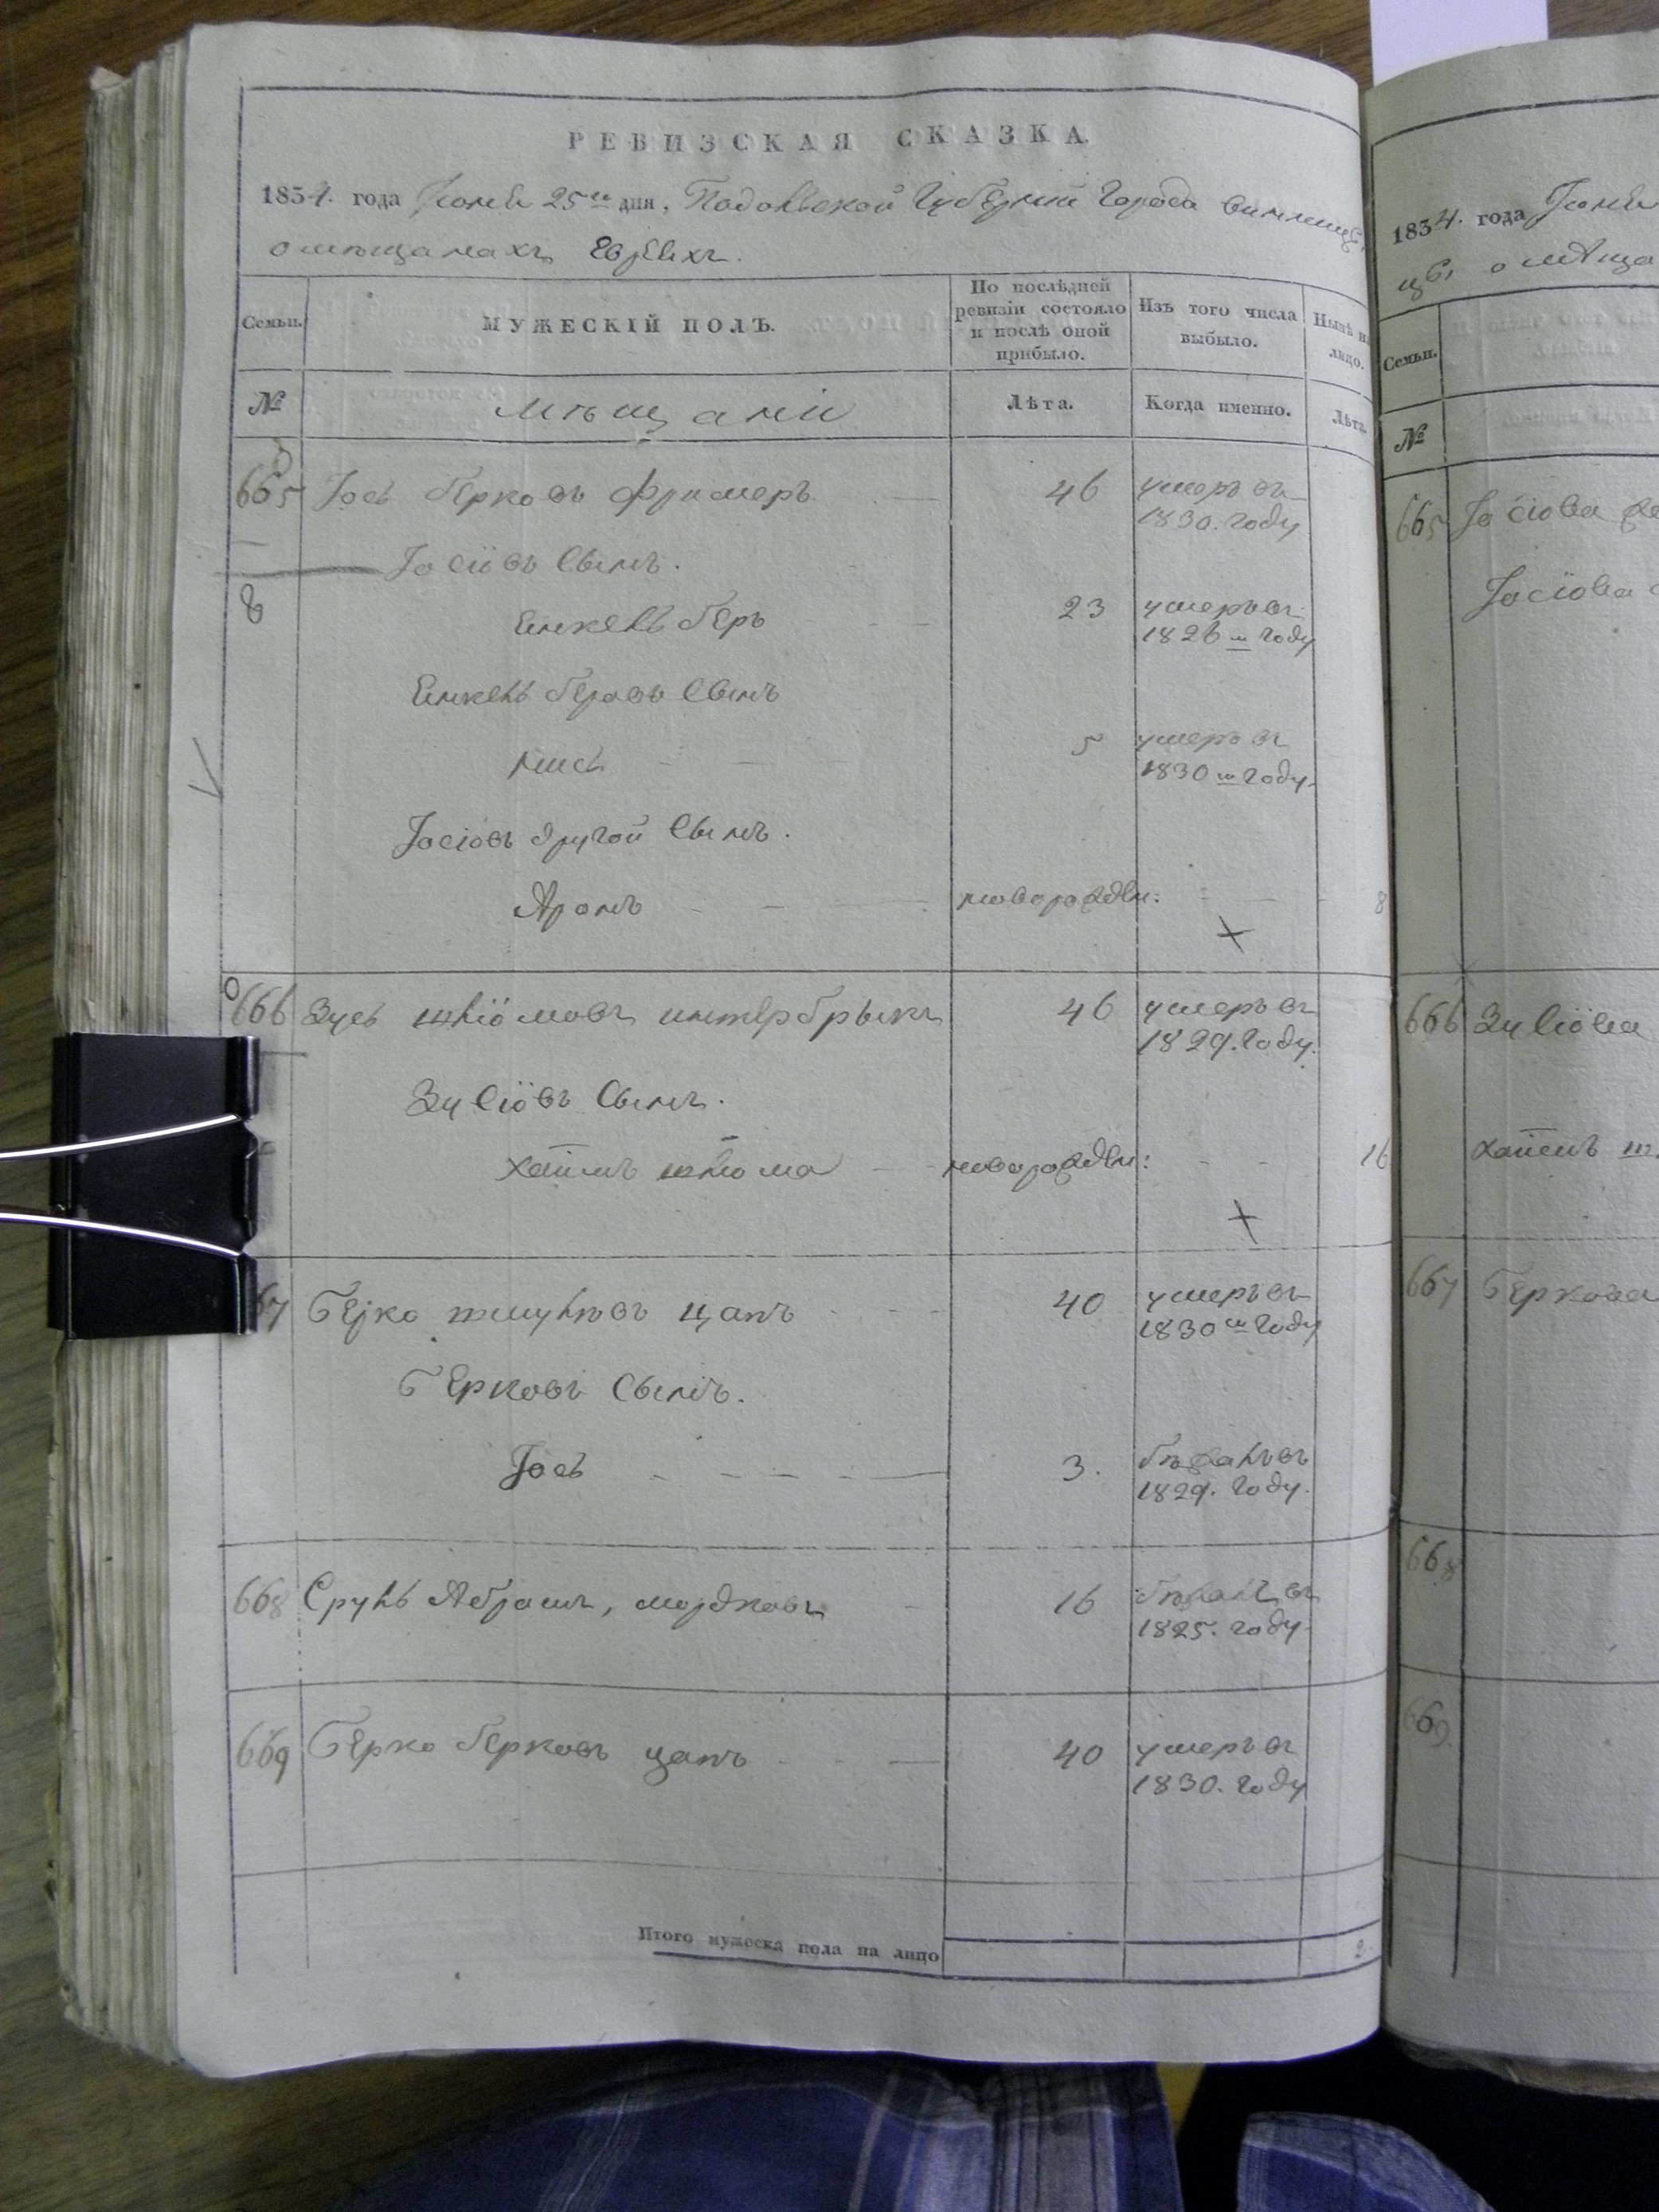 РЕВИЗСКАЯ СКАЗКА.
1834. года Іюня 25го дня, Подольской Губерніи Города Винницы
о мѣщанахъ Евреяхъ.
Семьи. МУЖЕСКІЙ ПОЛЪ. По послѣдней ревизіи состояло и послѣ оной прибыло. Изъ того числа выбыло. Нынѣ на лицо.
№ Мѣщани Лѣта. Когда именно. Лѣта.
665 Іось Берковъ Фримеръ 46 умеръ въ
1830. году
Іосіовъ Сынъ.
Янкель Беръ 23 умеръ въ
1826 м году
Янкель Беровъ Сынъ
5 умеръ въ
1830 м году.
Іосіовъ другой Сынъ.
Аронъ новорожден: 8
666 Зусь Шліомовъ 46 умеръ въ
1829. году.
Зусіовъ Сынъ.
Хаимъ Шліома новорожден: 16
67 Берко Шмулѣвъ Цапъ 40 умеръ въ
1830 м году
Берковъ Сынъ.
Іось 3. бѣжалъ въ
1829. году.
668 Сруль Абрамъ, Мордковъ 16 бѣжалъ въ
1825. году.
669 Берко Берковъ Цапъ 40 умеръ въ
1830. году
Итого мужеска пола на лицо 2.
1834. года Іюня
о мѣща
Семьи.
№
665 Іосіова
Іосіова
666 Зусіова
Хаимъ
667 Беркова
668
669